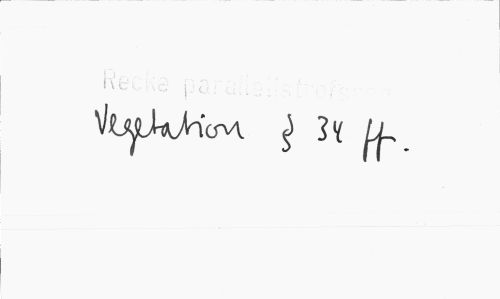 Recke parallellstrofs
Vegetation § 34 ff.